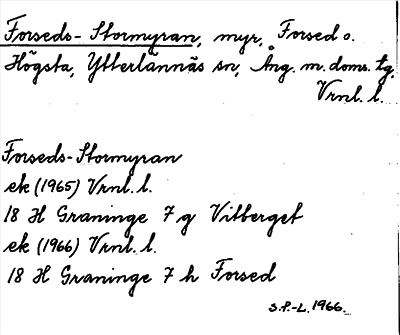 Forseds-Stormyran, myr, Forsed o.
Högsta, Ytterlännäs sn, Ång. m. doms. tg,
Vrnl. l.
Forseds-Stormyran
ek (1965) Vrnl. l.
18 H Graninge 7 g Vitberget
ek (1966) Vrnl. l.
18 H Graninge 7 h Forsed
S.P.-L. 1966.